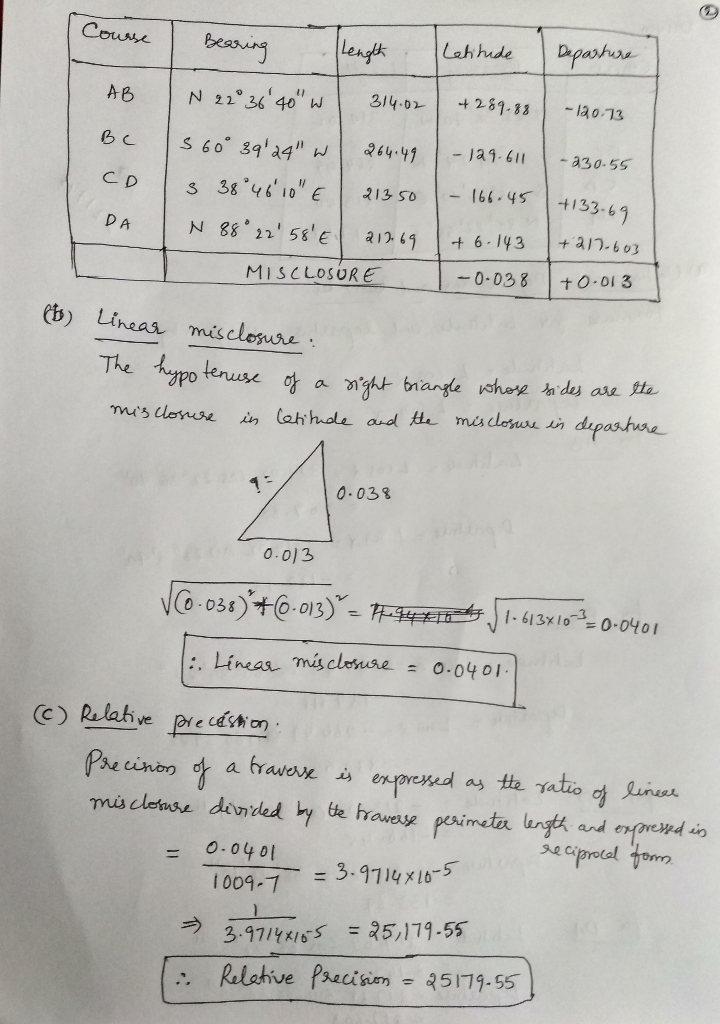 2
Course Bearing Length Latitude Departure
AB N 22° 36' 40" W 314.02 +289.88 -120.73
BC S 60° 39' 24" W 264.49 -129.611 -230.55
CD S 38° 46' 10" E 213.50 -166.45 +133.69
DA N 88° 22' 58' E 217.69 +6.143 +217.603
MISCLOSURE -0.038 +0.013
(b) Linear misclosure :
The hypotenuse of a right triangle whose sides are the
misclosure in latitude and the misclosure in departure
?=
0.038
0.013
√(0.038)²+(0.013)² = √1.613×10⁻³ = 0.0401
∴ Linear misclosure = 0.0401.
(c) Relative precision.
Precision of a traverse is expressed as the ratio of linear
misclosure divided by the traverse perimeter length and expressed in
reciprocal form
= 0.0401 / 1009.7 = 3.9714×10⁻⁵
⇒ 1 / 3.9714×10⁻⁵ = 25,179.55
∴ Relative Precision = 25179.55